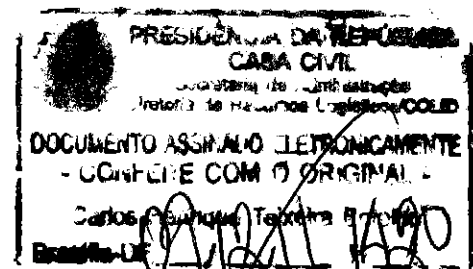 PRESIDÊNCIA DA REPÚBLICA
CASA CIVIL
Secretaria de Administração
Diretoria de Recursos Logísticos/COLID
DOCUMENTO ASSINADO ELETRONICAMENTE
- CONFERE COM O ORIGINAL -
Carlos Teixeira
Brasília-DF